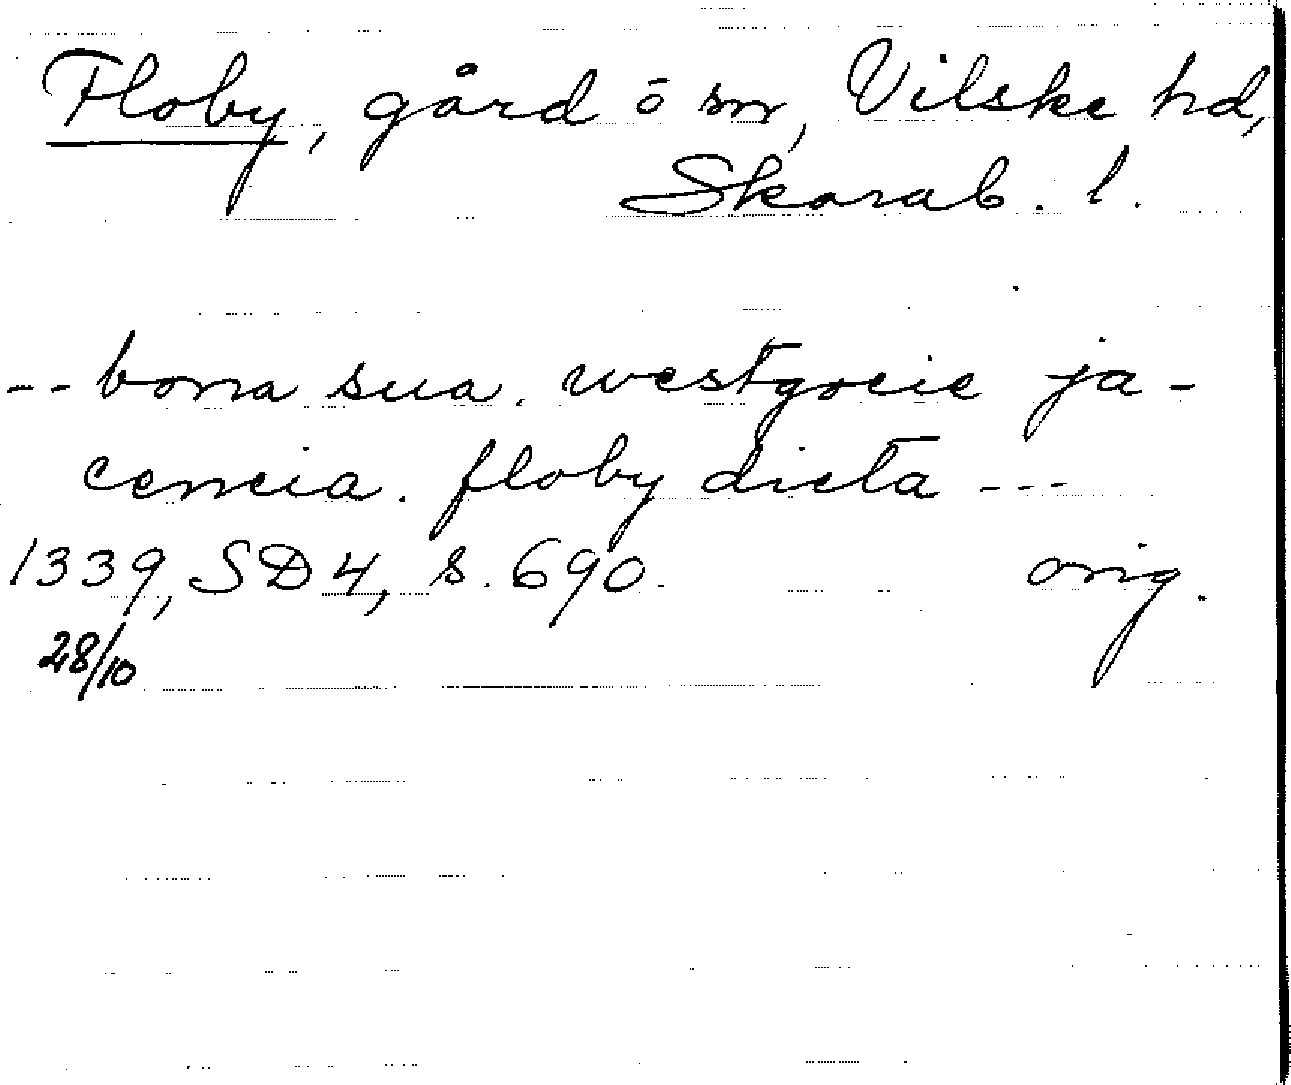 Floby, gård o sn, Vilske hd,
Skarab. l.
-- bona sua. westgocie ja-
cencia. floby dicta ---
1339, SD 4, s. 690. orig.
28/10